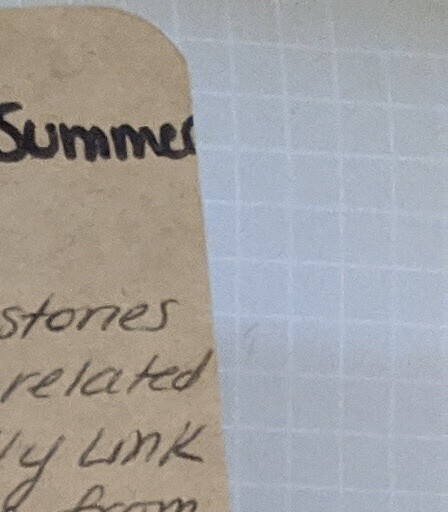 Summer
stories
related
ly Link
from